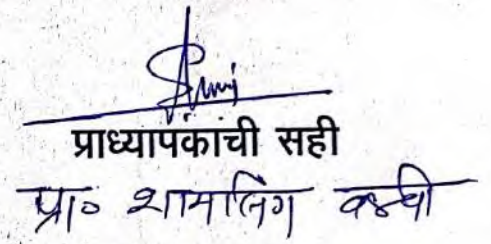 प्राध्यापकांची सही
प्रा० शामलिंग